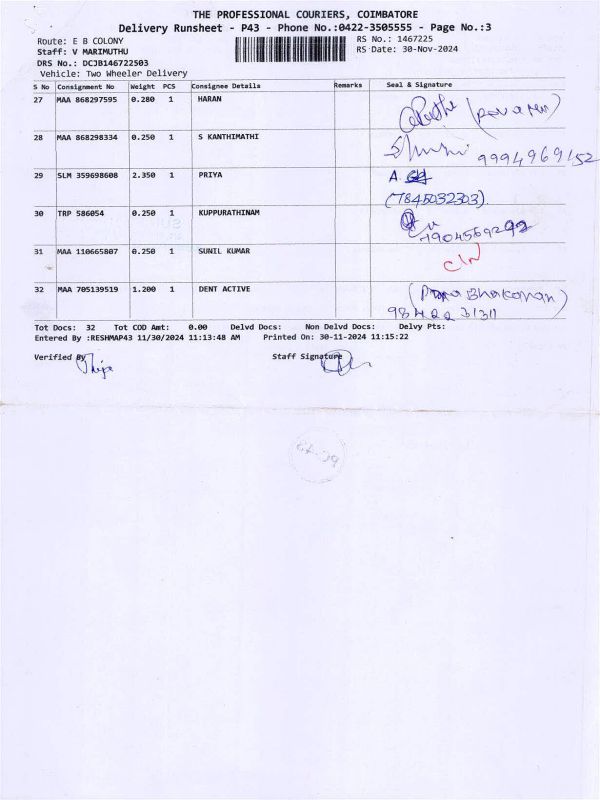 THE PROFESSIONAL COURIERS, COIMBATORE
Delivery Runsheet - P43 - Phone No.:0422-3505555 - Page No.:3
Route: E B COLONY RS No.: 1467225
Staff: V MARIMUTHU RS Date: 30-Nov-2024
DRS No.: DCJB146722503
Vehicle: Two Wheeler Delivery
S No Consignment No Weight PCS Consignee Details Remarks Seal & Signature
27 MAA 868297595 0.280 1 HARAN
28 MAA 868298334 0.250 1 S KANTHIMATHI 9994969152
29 SLM 359698608 2.350 1 PRIYA A.
(7845032303).
30 TRP 586054 0.250 1 KUPPURATHINAM
7904569292
31 MAA 110665807 0.250 1 SUNIL KUMAR
32 MAA 705139519 1.200 1 DENT ACTIVE
9842231311
Tot Docs: 32 Tot COD Amt: 0.00 Delvd Docs: Non Delvd Docs: Delvy Pts:
Entered By :RESHMAP43 11/30/2024 11:13:48 AM Printed On: 30-11-2024 11:15:22
Verified By Staff Signature